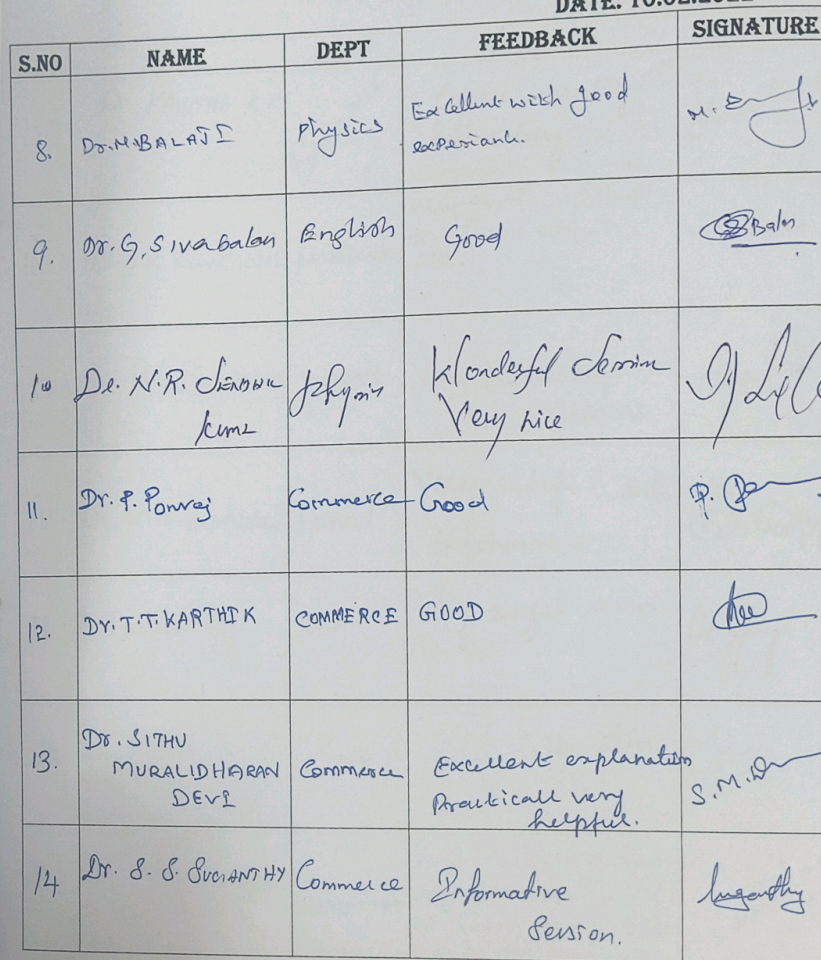 S.NO NAME DEPT FEEDBACK SIGNATURE
8. Dr.M.BALAJI Physics Excellent with good
experiank.
9. Dr.G.Sivabalan English Good Balan
10 Dr. N.R. Senthil Physis Wonderful Session
Kumar Very nice
11. Dr. P. Ponraj Commerce Good P.
12. Dr.T.T.KARTHIK COMMERCE GOOD
13. Dr. SITHU
MURALIDHARAN Commerce Excellent explanation S.M.D
DEVI Practicall very
helpful.
14 Dr. S. S. SUGANTHY Commerce Informative Suganthy
Session.